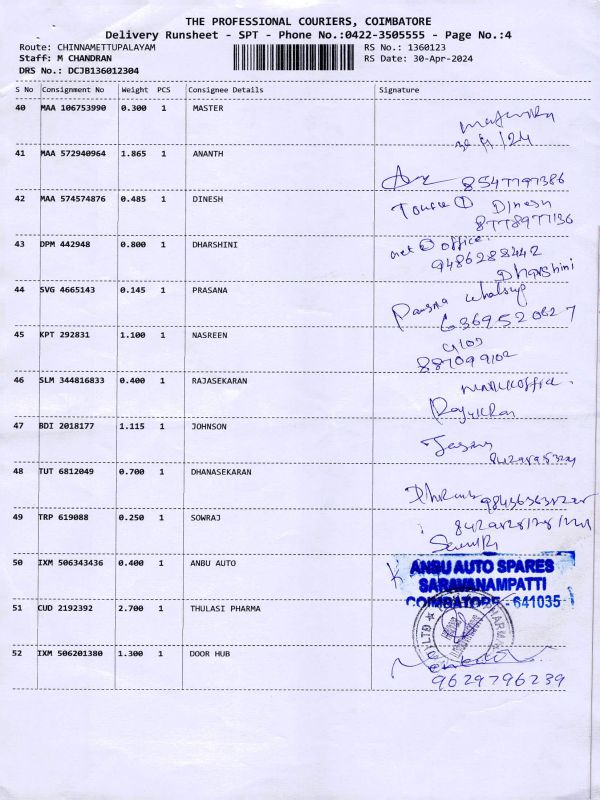 THE PROFESSIONAL COURIERS, COIMBATORE
Delivery Runsheet - SPT - Phone No.:0422-3505555 - Page No.:4
Route: CHINNAMETTUPALAYAM RS No.: 1360123
Staff: M CHANDRAN RS Date: 30-Apr-2024
DRS No.: DCJB136012304
S No Consignment No Weight PCS Consignee Details Signature
40 MAA 106753990 0.300 1 MASTER
41 MAA 572940964 1.865 1 ANANTH
8547797386
42 MAA 574574876 0.485 1 DINESH
Dinesh
8778977136
43 DPM 442948 0.800 1 DHARSHINI
office.
9486288442
Dharshini
44 SVG 4665143 0.145 1 PRASANA
whatsup
6369520827
45 KPT 292831 1.100 1 NASREEN
46 SLM 344816833 0.400 1 RAJASEKARAN
47 BDI 2018177 1.115 1 JOHNSON
48 TUT 6812049 0.700 1 DHANASEKARAN
49 TRP 619088 0.250 1 SOWRAJ
50 IXM 506343436 0.400 1 ANBU AUTO
ANBU AUTO SPARES
SARAVANAMPATTI
COIMBATORE - 641035
51 CUD 2192392 2.700 1 THULASI PHARMA
52 IXM 506201380 1.300 1 DOOR HUB
9629796239